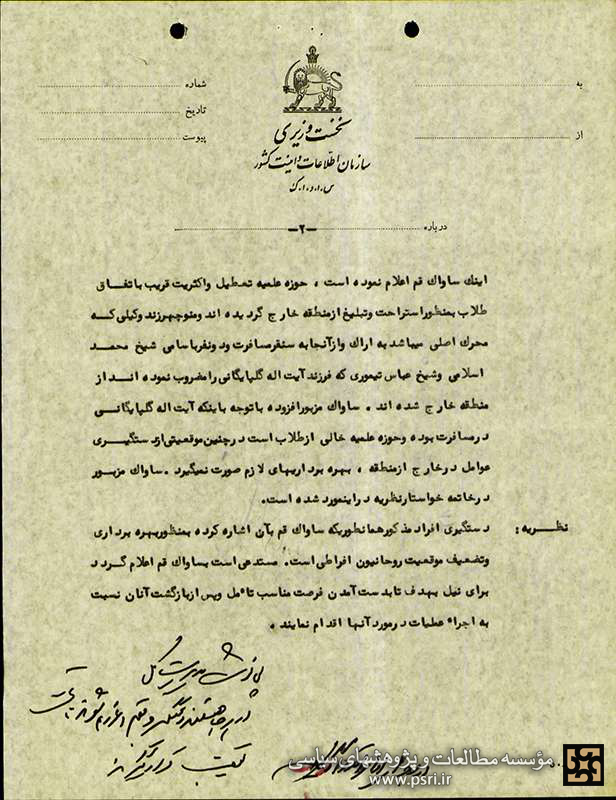 شماره
تاریخ
پیوست
به
از
نخست وزیری
سازمان اطلاعات و امنیت کشور
س.ا.و.ا.ک
درباره
-۲-
اینك ساواك قم اعلام نموده است ، حوزه علمیه تعطیل واكثریت قریب باتفاق
طلاب بمنظوراستراحت وتبلیغ ازمنطقه خارج گردیده اند ومنوچهرزند وكیلی كه
محرك اصلی میباشد به اراك وازآنجا به سنقرمسافرت ودونفرباسامی شیخ محمد
اسلامی وشیخ عباس تیموری كه فرزند آیت اله گلپایگانی رامضروب نموده انداز
منطقه خارج شده اند . ساواك مزبورافزوده باتوجه باینكه آیت اله گلپایگانی
درمسافرت بوده وحوزه علمیه خالی ازطلاب است درچنین موقعیتی ازدستگیری
عوامل درخارج ازمنطقه ، بهره برداریهای لازم صورت نمیگیرد .ساواك مزبور
درخاتمه خواستارنظریه دراینمورد شده است.
نظریه :
دستگیری افراد مذكورهمانطوریكه ساواك قم بآن اشاره كرده بمنظوربهره برداری
وتضعیف موقعیت روحانیون افراطی است. مستدعی است بساواك قم اعلام گردد
برای نیل بهدف تابدست آمدن فرصت مناسب تاٴمل وپس ازبازگشت آنان نسبت
به اجراء عملیات درمورد آنها اقدام نمایند .
مؤسسه مطالعات و پژوهشهای سیاسی
www.psri.ir